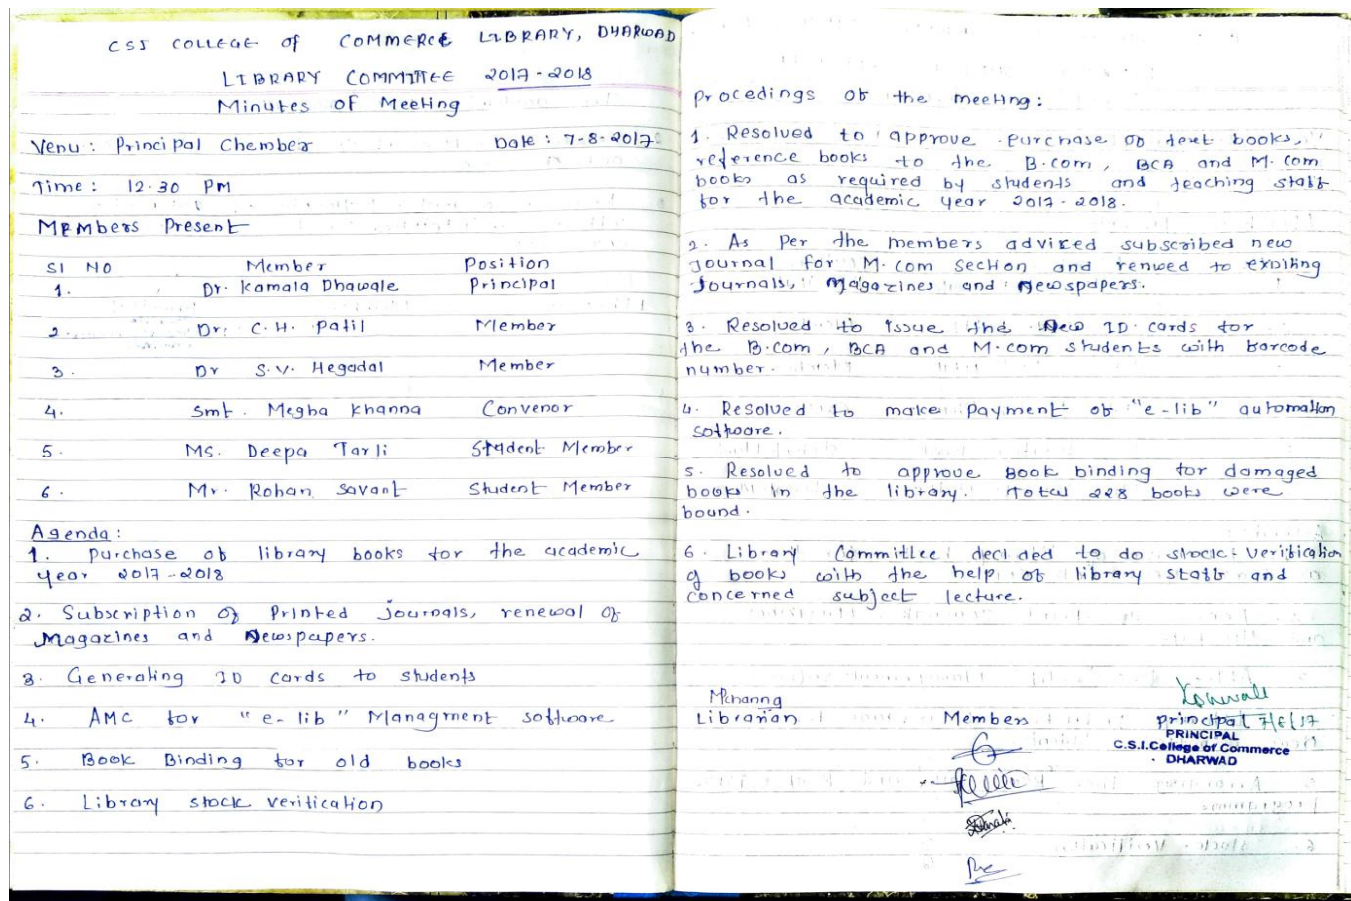 CSI COLLEGE of COMMERCE LIBRARY, DHARWAD
LIBRARY COMMITTEE 2017-2018
Minutes of Meeting
Venu : Principal Chember Date : 7-8-2017
Time : 12.30 PM
Members Present
Sl NO Member Position
1. Dr. Kamala Dhawale Principal
2. Dr. C.H. Patil Member
3. Dr S.V. Hegadal Member
4. Smt. Megha Khanna Convenor
5. MS. Deepa Tarli Student Member
6. Mr. Rohan Savant Student Member
Agenda :
1. Purchase of library books for the academic
year 2017-2018
2. Subscription of Printed journals, renewal of
Magazines and Newspapers.
3. Generating ID cards to students
4. AMC for "e-lib" Managment software
5. Book Binding for old books
6. Library stock verification
Procedings of the meeting :
1. Resolved to approve purchase of text books,
reference books to the B.com, BCA and M.com
books as required by students and teaching staff
for the academic year 2017-2018.
2. As per the members adviced subscribed new
journal for M.com section and renwed to exniting
Journals, Magazines and Newspapers.
3. Resolved to issue the New ID cards for
the B.com, BCA and M.com students with barcode
number.
4. Resolved to make payment of "e-lib" automation
software.
5. Resolved to approve Book binding for damaged
books in the library. Total 228 books were
bound.
6. Library Committee decided to do stock verification
of books with the help of library staff and
concerned subject lecture.
Librarian Members Principal
PRINCIPAL
C.S.I.College of Commerce
DHARWAD